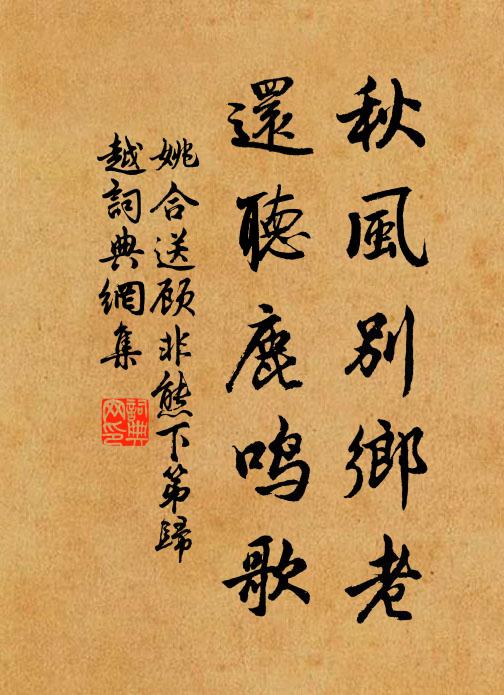 秋風別鄉老
還聽鹿鳴歌
姚合送顾非熊下第歸
越詞典網集
詞典
网印